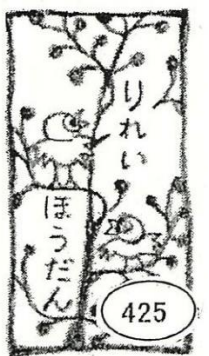 りれい
ほうだん
425